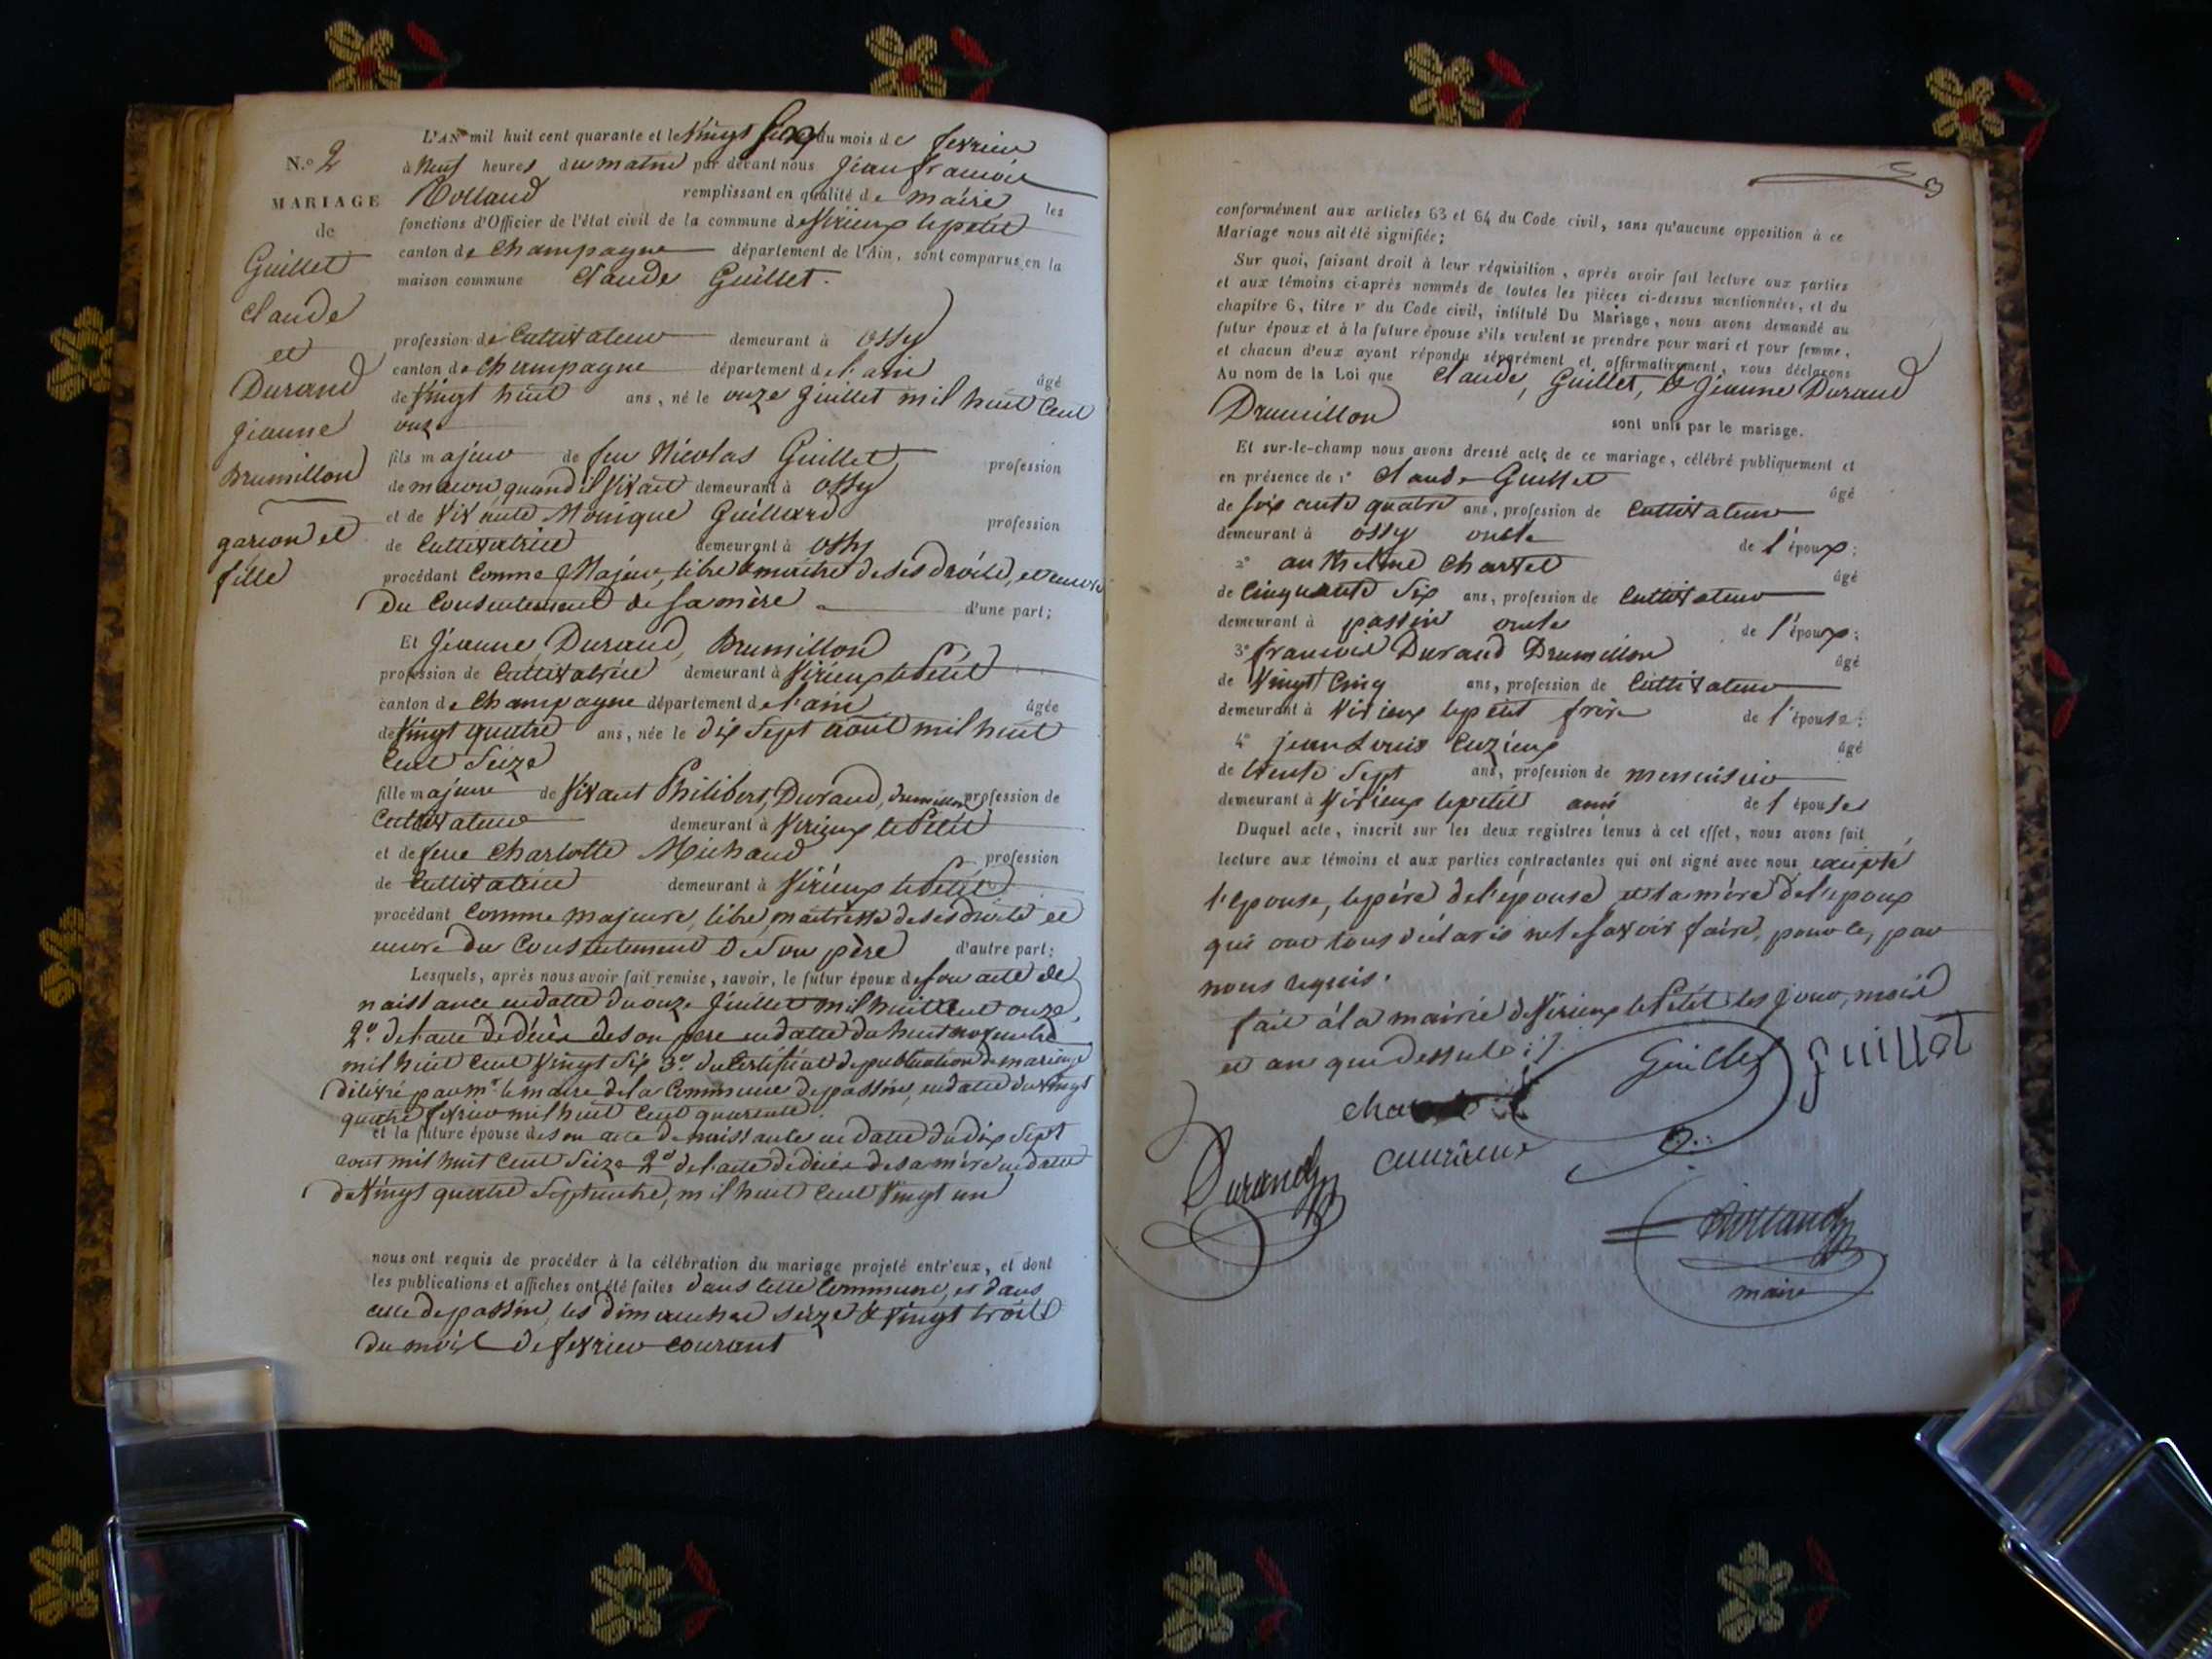 L'AN mil huit cent quarante et le vingt six du mois de fevrier
N.° 2
à neuf heures du matin par devant nous jean francois
MARIAGE
Rolland remplissant en qualité de maire les
de
fonctions d'Officier de l'état civil de la commune de virieux le petit
Guillet
canton de champagne département de l'Ain, sont comparus en la
maison commune Claude Guillet.
Claude
et
profession de Cultivateur demeurant à ossy
Durand
canton de champagne département de l'ain âgé
jeanne
de vingt huit ans, né le onze juillet mil huit cent
onze
Brumillon
fils majeur de feu Nicolas Guillet, profession
de maçon, quand il vivait demeurant à ossy
garcon et
et de vivante Monique Guillard profession
fille
de Cultivatrice demeurant à ossy
procédant comme Majeur, libre & maitre de ses droits, et encore
du consentement de sa mère d'une part;
Et jeanne, Durand, Brumillon
profession de Cultivatrice demeurant à virieux le Petit
canton de champagne département de l'ain âgée
de vingt quatre ans, née le dix sept aout mil huit
cent seize
fille majeure de vivant Philibert, Durand, drumillon profession de
Cultivateur demeurant à virieux le Petit
et de feue charlotte Michaud profession
de Cultivatrice demeurant à virieux le Petit
procédant comme majeure, libre, maitresse de ses droits et
encore du consentement de son père d'autre part;
Lesquels, après nous avoir fait remise, savoir, le futur époux de son acte de
naissance en datte du onze juillet mil huit cent onze,
2° de l'acte de décès de son pere en datte du huit novembre
mil huit cent vingt six 3° du certificat de publication de mariage
délivré par mr le maire de la commune de passin, en datte du vingt
quatre fevrier mil huit cent quarente.
et la future épouse de son acte de naissance en datte du dix sept
aout mil huit cent seize 2° de l'acte de décès de sa mère en datte
du vingt quatre septembre, mil huit cent vingt un
nous ont requis de procéder à la célébration du mariage projeté entr'eux, et dont
les publications et affiches ont été faites dans cette commune, et dans
celle de passin, les dimanches seize & vingt trois
du mois de fevrier courant
3
conformément aux articles 63 et 64 du Code civil, sans qu'aucune opposition à ce
Mariage nous ait été signifiée;
Sur quoi, faisant droit à leur réquisition, après avoir fait lecture aux parties
et aux témoins ci-après nommés de toutes les pièces ci-dessus mentionnées, et du
chapitre 6, titre v du Code civil, intitulé Du Mariage, nous avons demandé au
futur époux et à la future épouse s'ils veulent se prendre pour mari et pour femme,
et chacun d'eux ayant répondu séparément et affirmativement, nous déclarons
Au nom de la Loi que Claude, Guillet, & jeanne Durand
Drumillon sont unis par le mariage.
Et sur-le-champ nous avons dressé acte de ce mariage, célébré publiquement et
en présence de 1° claude Guillet âgé
de soixante quatre ans, profession de Cultivateur
demeurant à ossy oncle de l'époux;
2° anthelme charvet âgé
de cinquante six ans, profession de Cultivateur
demeurant à passin oncle de l'époux;
3° francois Durand Drumillon âgé
de vingt cinq ans, profession de Cultivateur
demeurant à virieux le petit frère de l'épouse;
4° jean Louis Cuzieux âgé
de trente sept ans, profession de menuisier
demeurant à virieux le petit ami de l'épouse
Duquel acte, inscrit sur les deux registres tenus à cet effet, nous avons fait
lecture aux témoins et aux parties contractantes qui ont signé avec nous excepté
l'epouse, le père de l'épouse et la mère de l'epoux
qui ont tous déclaris ne le savoir faire, pour ce, par
nous requis.
fait à la mairie de virieux le Petit les jour, mois
et an que dessus
Guillet guillet
Durand
Rolland
maire